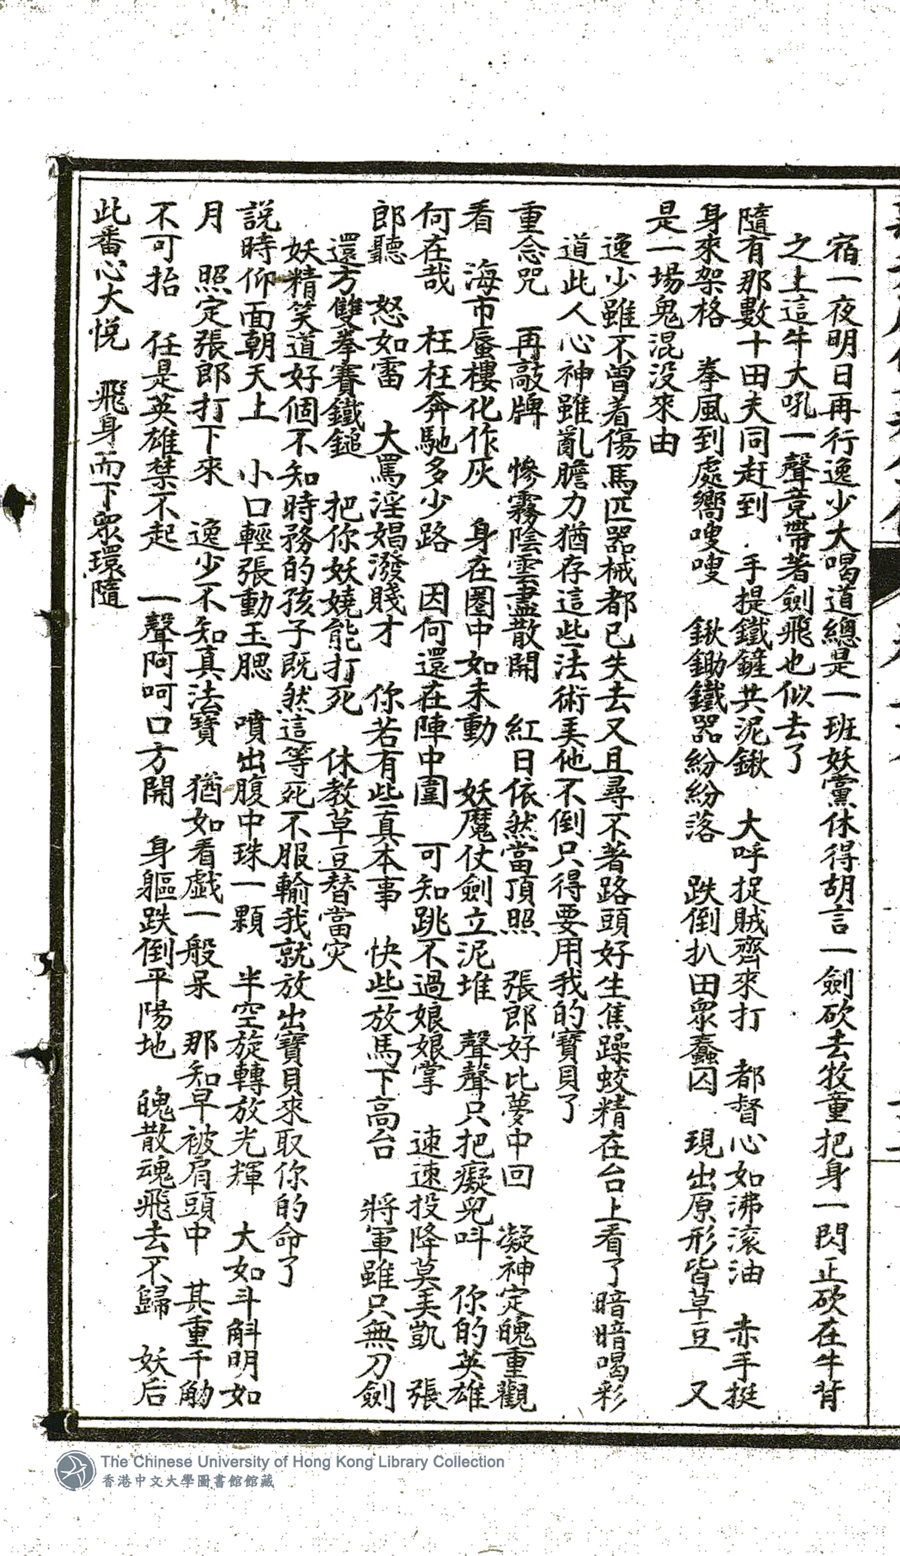 宿一夜明日再行逸少大喝道總是一班妖黨休得胡言一劍砍去牧童把身一閃正砍在牛背
之上這牛大吼一聲竟帶著劍飛也似去了
隨有那數十田夫同赶到 手提鐵鏟共泥鍬 大呼捉賊齊來打 都督心如沸滚油 赤手挺
身來架格 拳風到處嚮嗖嗖 鍬鋤鐵器紛紛落 跌倒扒田眾蠢囚 現出原形皆草豆 又
是一場鬼混没來由
逸少雖不曾着傷馬匹器械都已失去又且尋不著路頭好生焦躁蛟精在台上看了暗暗喝彩
道此人心神雖亂膽力猶存這些法術美他不倒只得要用我的寶貝了
重念咒 再敲牌 慘霧陰雲盡散開 紅日依然當頂照 張郎好比夢中回 凝神定魄重觀
看 海市蜃樓化作灰 身在圈中如未動 妖魔仗劍立泥堆 聲聲只把癡兒呌 你的英雄
何在哉 枉枉奔馳多少路 因何還在陣中圍 可知跳不過娘娘掌 速速投降莫美凱 張
郎聽 怒如雷 大罵淫娼潑賤才 你若有些真本事 快些放馬下高台 將軍雖只無刀劍
還方雙拳賽鐵鎚 把你妖嬈能打死 休教草豆替當灾
妖精笑道好個不知時務的孩子既然這等死不服輸我就放出寶貝來取你的命了
説時仰面朝天上 小口輕張動玉腮 噴出腹中珠一顆 半空旋轉放光輝 大如斗斛明如
月 照定張郎打下來 逸少不知真法寶 猶如看戲一般呆 那知早被肩頭中 其重千觔
不可抬 任是英雄禁不起 一聲阿呵口方開 身軀跌倒平陽地 魄散魂飛去不歸 妖后
此番心大悦 飛身而下眾環隨
The Chinese University of Hong Kong Library Collection
香港中文大學圖書館館藏